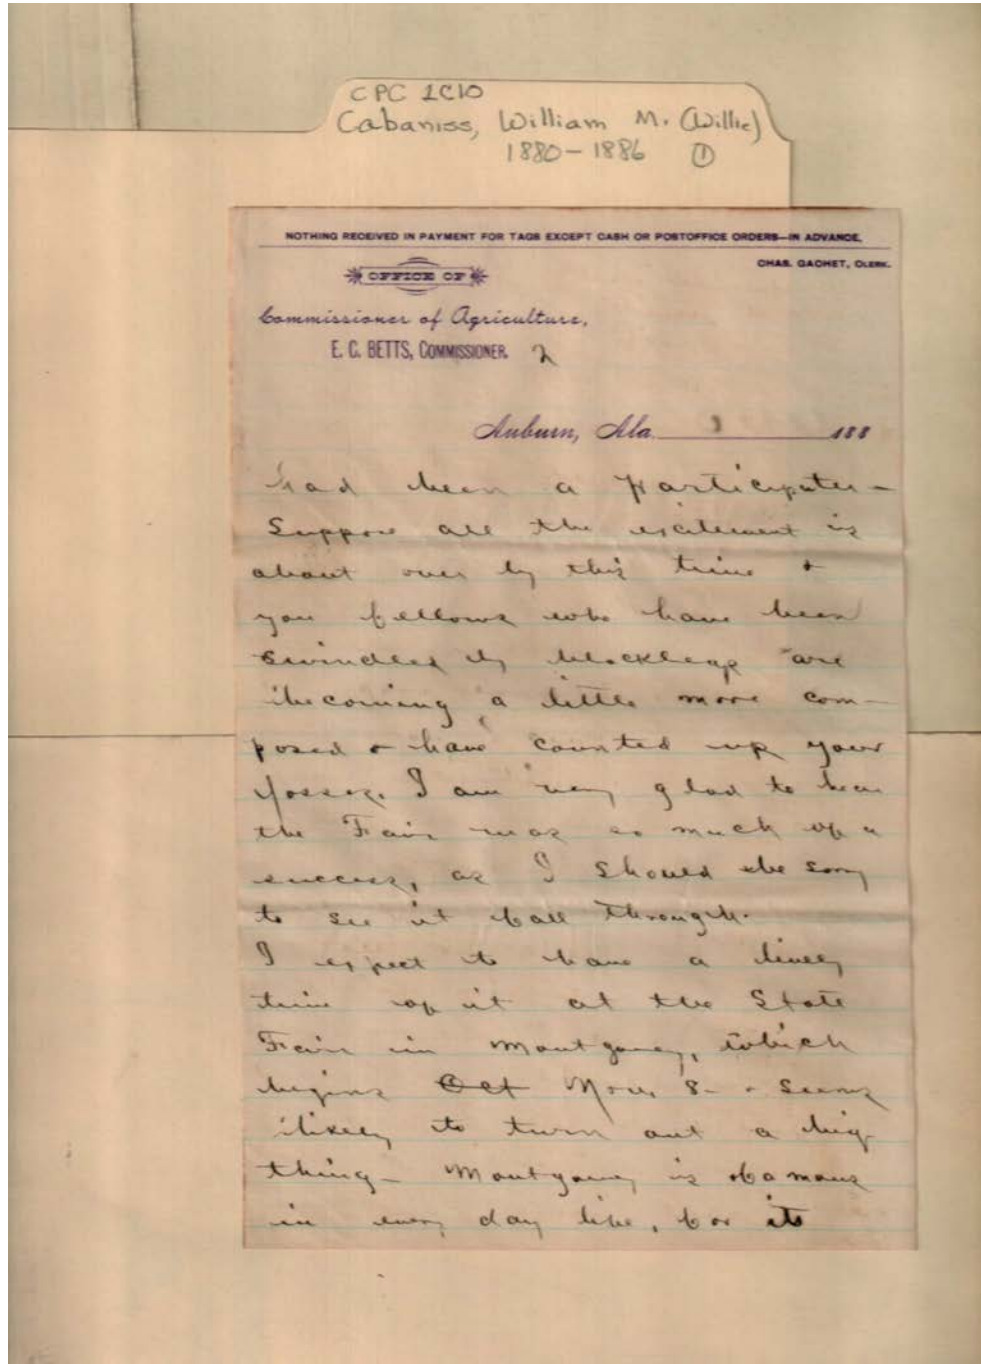 CPC 1C10
Cabaniss, William M. (Willie)
1880-1886 ①
NOTHING RECEIVED IN PAYMENT FOR TAGS EXCEPT CASH OR POSTOFFICE ORDERS—IN ADVANCE.
CHAS. GACHET, CLERK.
OFFICE OF
Commissioner of Agriculture,
E. C. BETTS, COMMISSIONER. 2
Auburn, Ala. 188
had been a participater -
Suppose all the excitement is
about over by this time &
you fellows who have been
swindled by blacklegs are
becoming a little more com-
posed & have counted up your
losses. I am very glad to hear
the Fair was so much of a
success, as I should be sorry
to see it fall through.
I expect to have a lively
time of it at the State
Fair in Montgomery, which
begins Oct Nov. 8 - & seems
likely to turn out a big
thing - Montgomery is famous
in every day life, for its